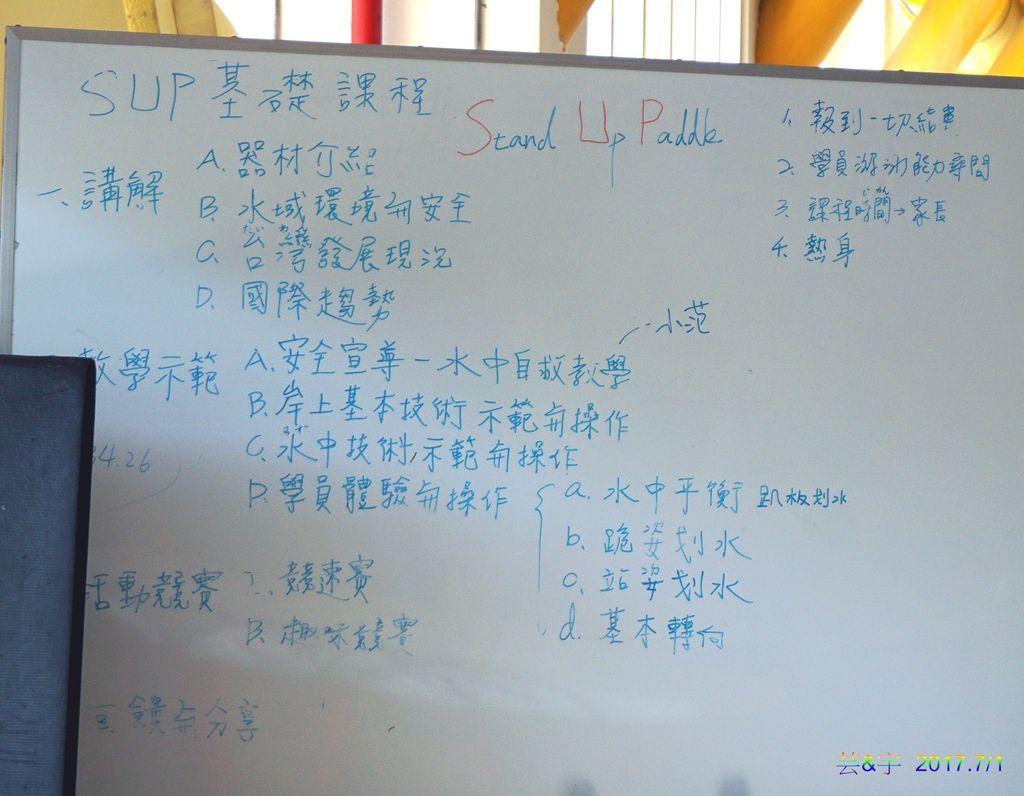 SUP基礎課程
Stand Up Paddle
一、講解
A. 器材介紹
B. 水域環境与安全
C. 台灣發展現況
D. 國際趨勢
教學示範
A. 安全宣導－水中自救教學
小范
B. 岸上基本技術示範与操作
みず
C. 水中技術, 示範与操作
D. 學員體驗与操作
a. 水中平衡 趴板划水
b. 跪姿划水
c. 站姿划水
d. 基本轉向
34.26
活動競賽
競速賽
B. 趣味競賽
饋与分享
1. 報到－切結書
2. 學員游泳能力詢問
じかん
3. 課程時間→家長
4. 熱身
芸&宇 2017.7/1